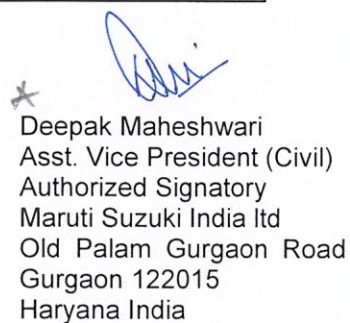 Deepak Maheshwari
Asst. Vice President (Civil)
Authorized Signatory
Maruti Suzuki India ltd
Old Palam Gurgaon Road
Gurgaon 122015
Haryana India